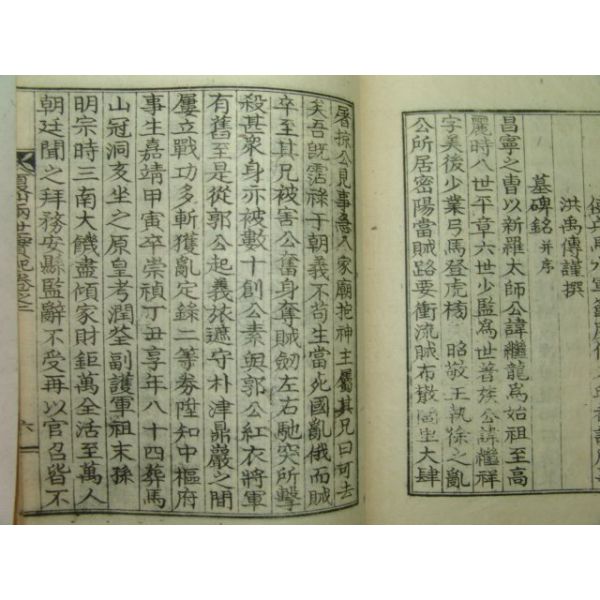 墓碑銘 并序
洪禹傳謹撰
昌寧之曺以新羅太師公諱繼龍為始祖至高
麗時八世平章六世少監為世著族公諱繼祥
字美後少業弓馬登虎榜 昭敬王執徐之亂
公所居密陽當賊路要衝流賊布散闾里大肆
屠掠公見事急入家廟抱神主屬其兄曰可去
矣吾旣霑祿于朝義不苟生當死國亂俄而賊
卒至其兄被害公奮身奪賊劒左右馳突所擊
殺甚衆身亦被數十創公素與郭公紅衣將軍
有舊至是從郭公起義旅遮守朴津鼎巖之間
屢立戰功多斬獲亂定錄二等券陞知中樞府
事生嘉靖甲寅卒崇禎丁丑享年八十四葬馬
山冠洞亥坐之原皇考潤荃副護軍祖末孫
明宗時三南大饑盡傾家財鉅萬全活至萬人
朝廷聞之拜務安縣監辭不受再以官召皆不
兩世實紀卷之二
六